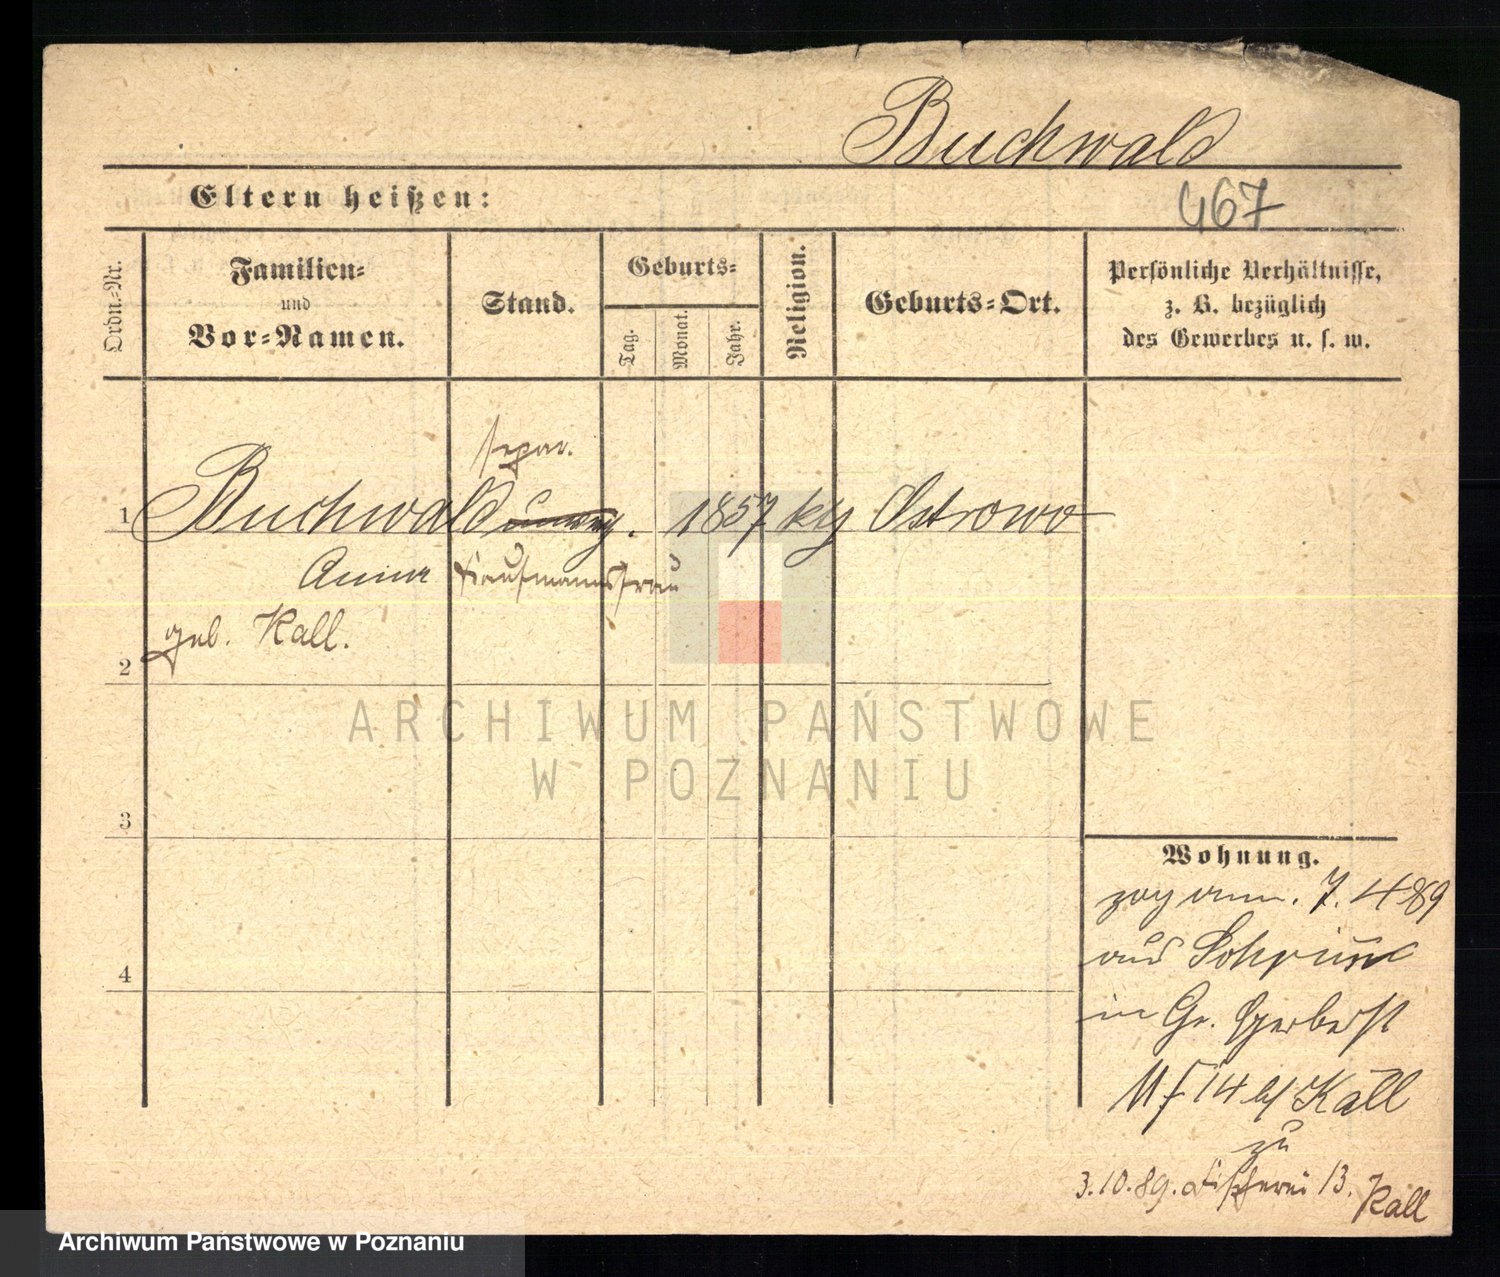 Buchwald
Eltern heißen:
467
Ordn.-Nr.
Familien-
und
Vor-Namen.
Stand.
Geburts-
Tag.
Monat.
Jahr.
Religion.
Geburts-Ort.
Persönliche Verhältnisse,
z. B. bezüglich
des Gewerbes u. s. w.
separ.
1 Buchwald 1857 Ostrowo
Anna Kaufmannsfrau
geb. Kall.
2
ARCHIWUM PAŃSTWOWE
W POZNANIU
3
4
Wohnung.
zog an. 7. 4 89
aus
in Gr. Gerberst
14 b/ Kall
zu
3.10.89. Fischerei 13. Kall
Archiwum Państwowe w Poznaniu